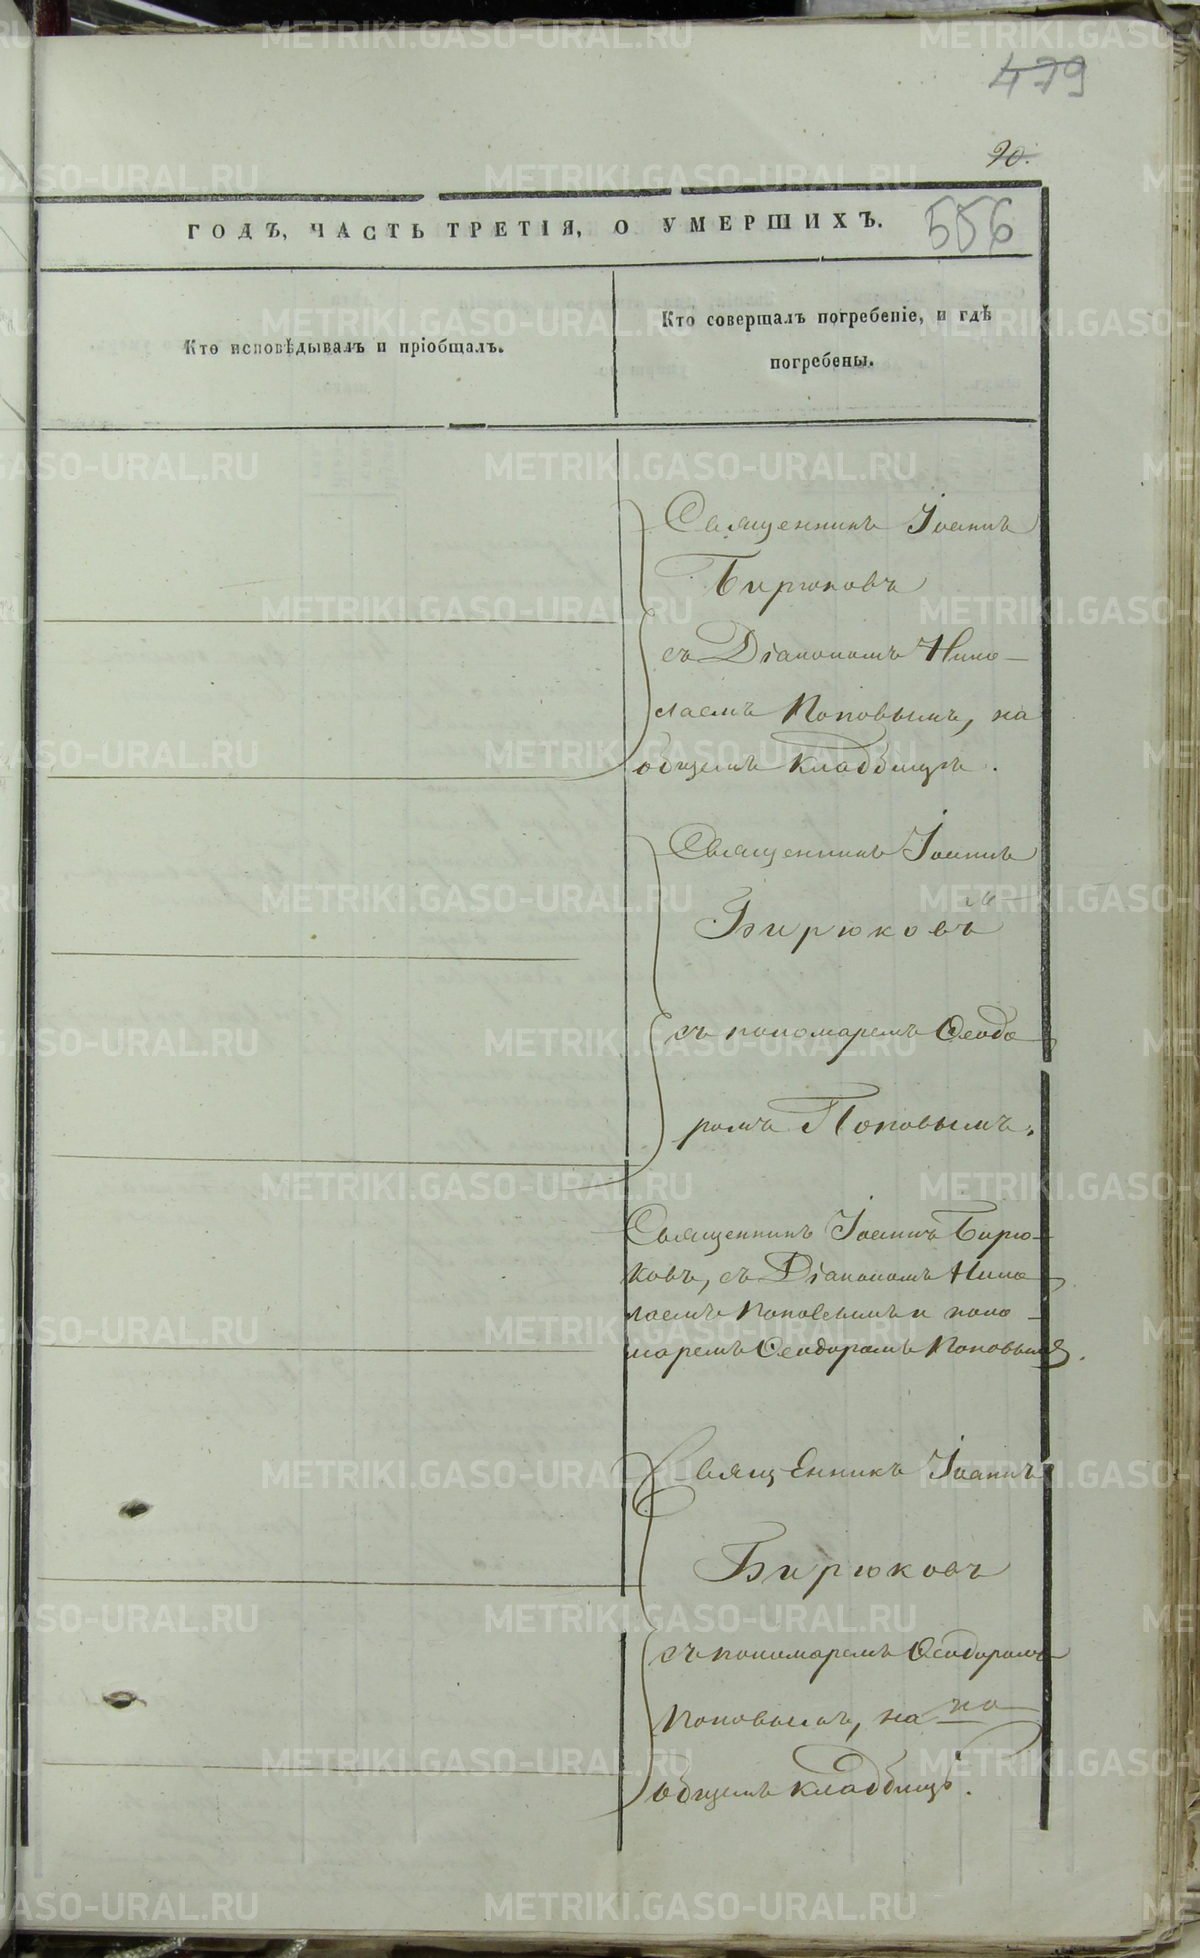 479
90.
ГОДЪ, ЧАСТЬ ТРЕТІЯ, О УМЕРШИХЪ.
556
Кто исповѣдывалъ и пріобщалъ.
Кто совершалъ погребеніе, и гдѣ
погребены.
Священникъ Іоаннъ
Бирюковъ
съ Діакономъ Нико-
лаемъ Поповымъ, на
общемъ кладбищѣ.
Священникъ Іоаннъ
Бирюковъ
съ пономаремъ Ѳеодо
ромъ Поповымъ.
Священникъ Іоаннъ Бирю-
ковъ, съ Діакономъ Нико
лаемъ Поповымъ и поно-
маремъ Ѳеодоромъ Поповымъ.
Священникъ Іоаннъ
Бирюковъ
съ пономаремъ Ѳеодоромъ
Поповымъ, на на
общемъ кладбищѣ.
METRIKI.GASO-URAL.RU